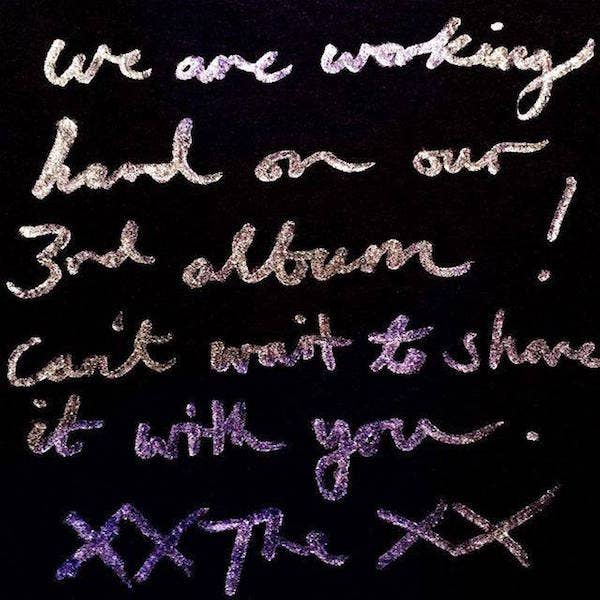 we are working
hard on our
3rd album !
can't wait to share
it with you .
XX The XX